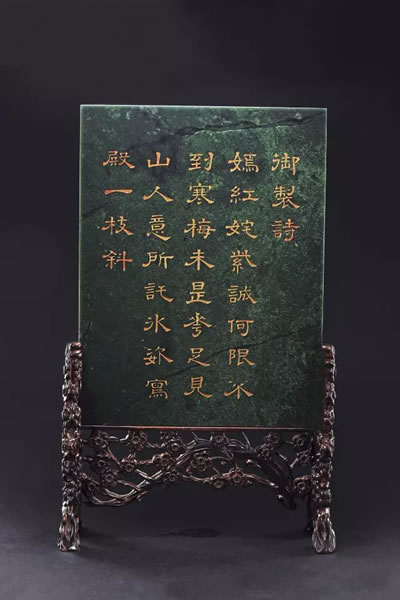 御製詩
嫣紅姹紫誠何限不
到寒梅未是花足見
山人意所託氷姿寫
殿一枝斜